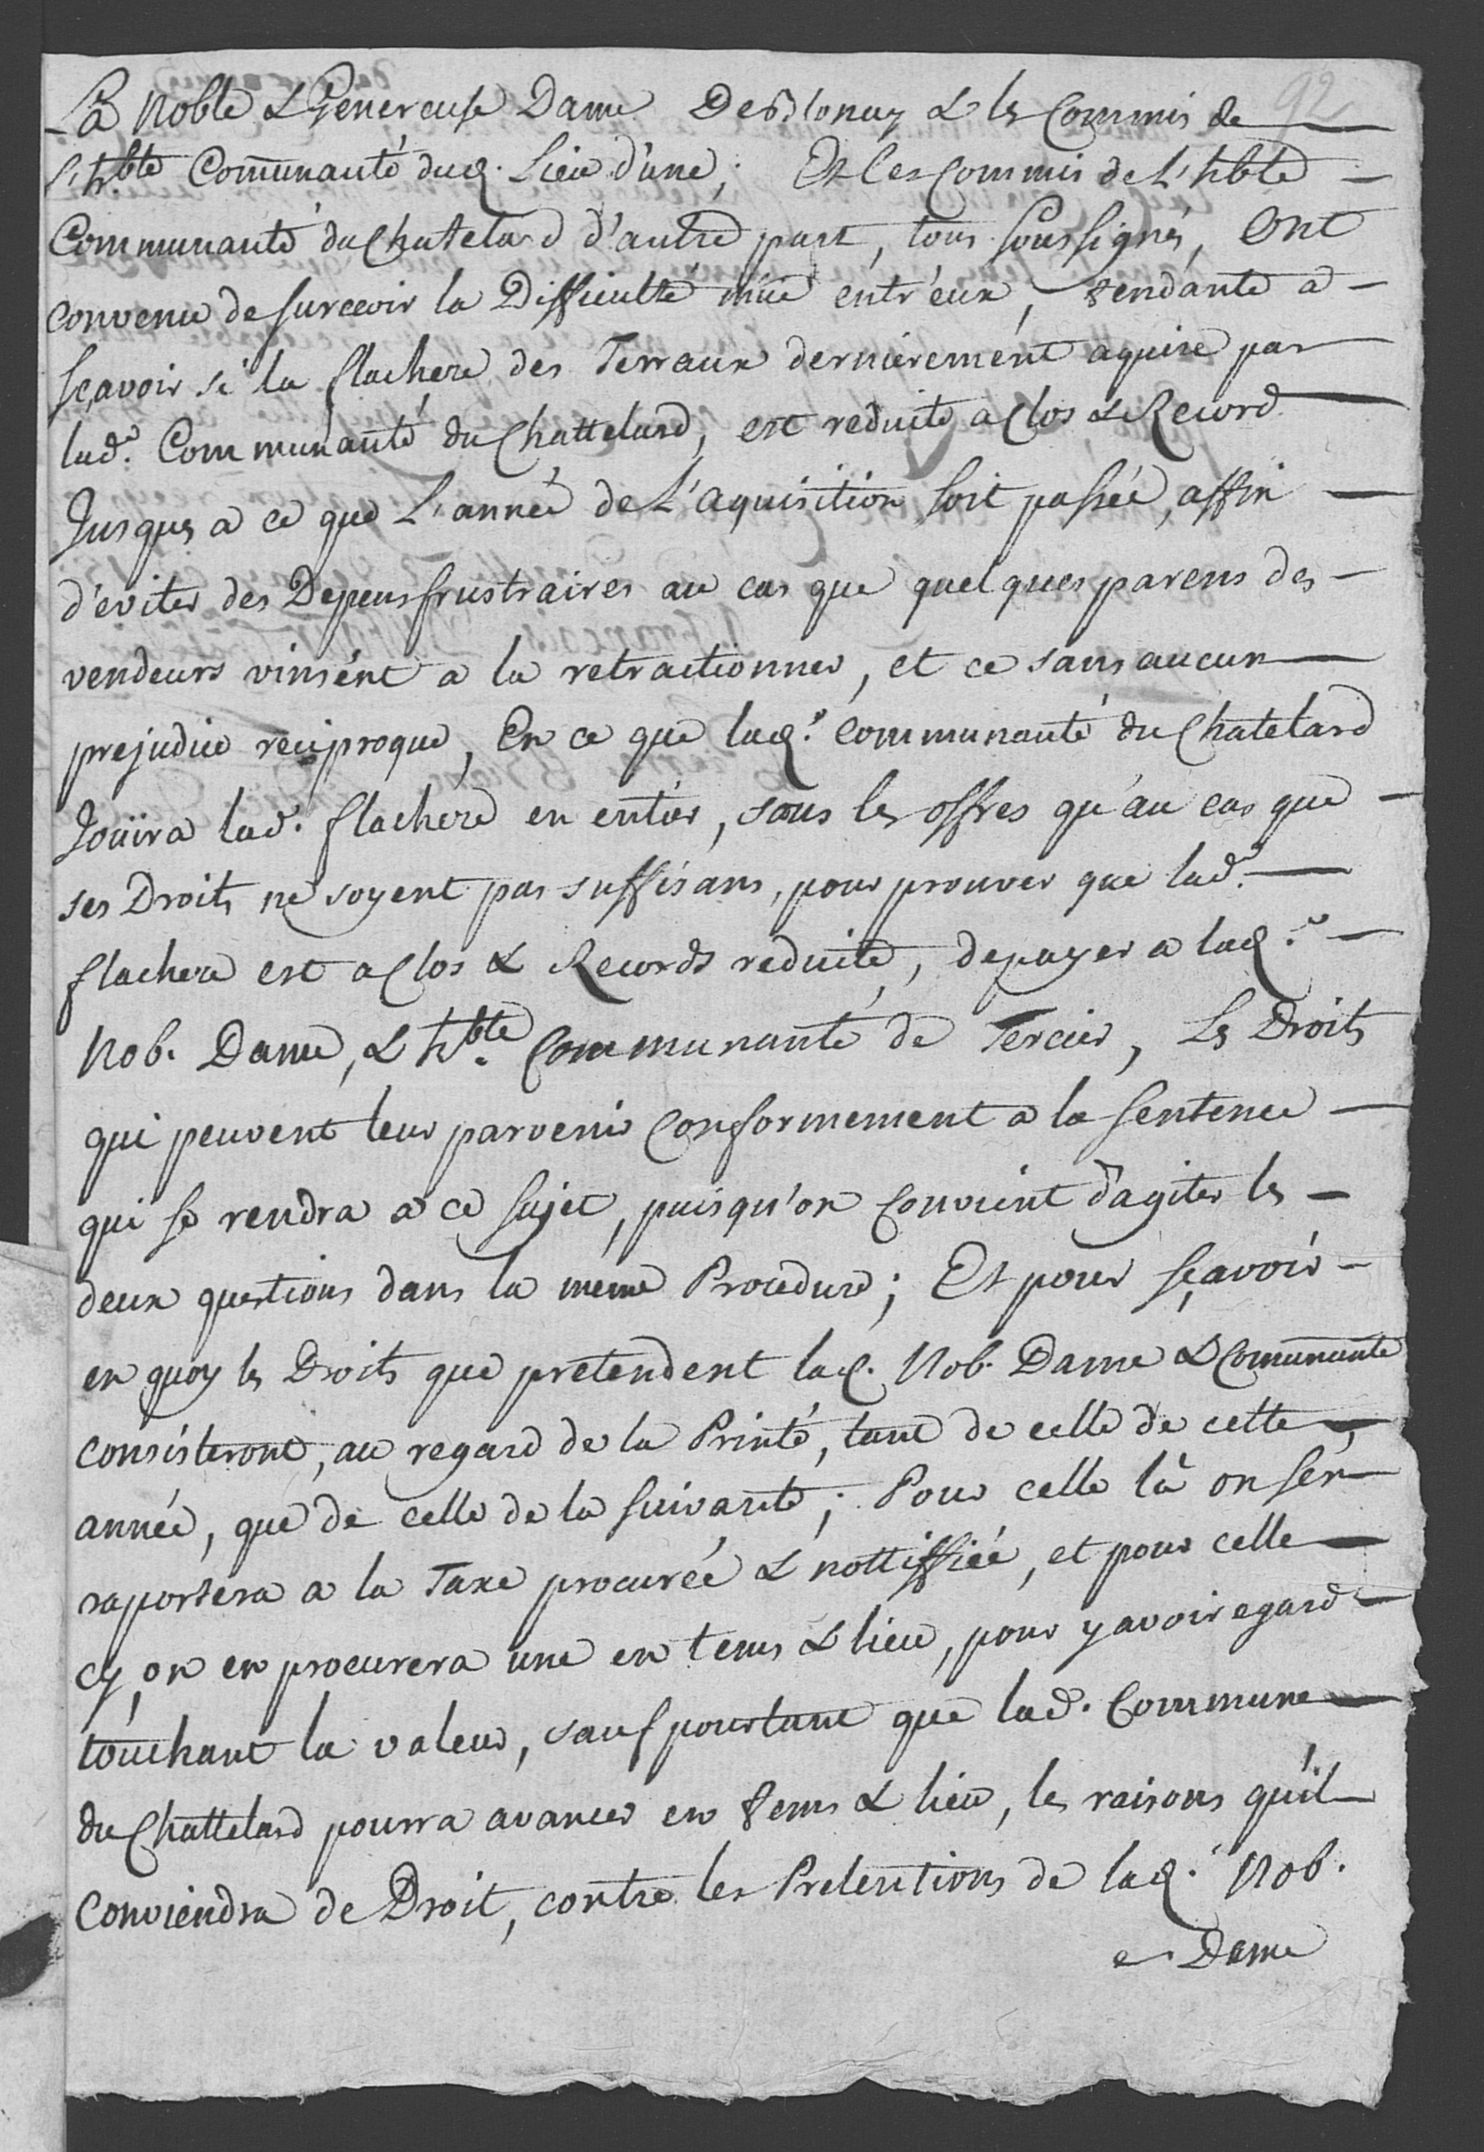 92
La Noble & Genereuse Dame De Blonay & les Commis de
l'h.ble Communauté dud. Lieu d'une; Et les Commis de L'hble
Communauté du Chatelard d'autre part, tous soussignés, Ont
convenu de surceoir la Difficulté müe entr'eux, tendante a
sçavoir si la flachere des Terraux dernierement aquise par
lad.e Communauté du Chattelard, est reduite a Clos & Record
Jusques a ce que L'année de L'aquisition soit passée, affin
d'eviter des Depens frustraires au cas que quelques parens des
vendeurs vinsent a la retractionner, et ce sans aucun
prejudice reciproque, En ce que lad.e Communauté du Chatelard
Joüira lad. flachere en entier, sous les offres qu'au cas que
ses Droits ne soyent pas suffisans, pour prouver que lad.e
flachere est a Clos & Records reduite, de payer a lad.e
Nob. Dame, & h.ble Communauté de Tercier, Les Droits
qui peuvent leur parvenir Conformement a la Sentence
qui se rendra a ce sujet, puisqu'on Convient d'agiter les
deux questions dans la méme Procedure; Et pour sçavoir
en quoy les Droits que pretendent lad. Nob. Dame & Comunauté
Consisteront, au regard de la Printé, tant de celle de cette
année, que de celle de la suivante; Pour celle là on s'en
raportera a la Taxe procurée & nottiffiée, et pour celle
cy, on en procurera une en tems & lieu, pour y avoir egard
touchant la valeur, sauf pourtant que lad. Commune
du Chattelard pourra avancer en tems & lieu, les raisons qu'il
Conviendra de Droit, contre les Pretentions de lad. Nob.
Dame